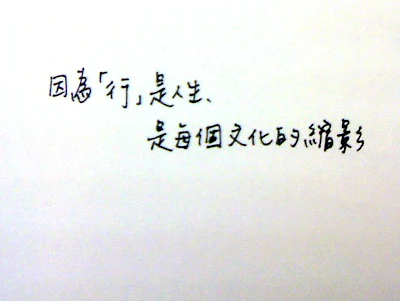 因為「行」是人生、
是每個文化的縮影